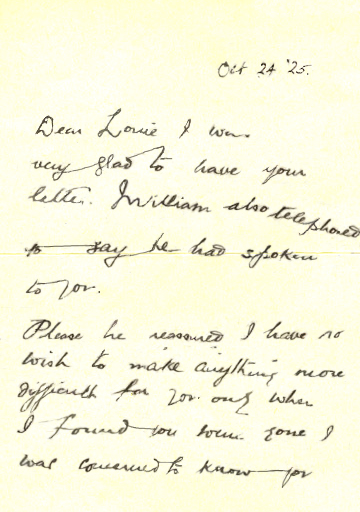 Oct 24 '25.
Dear Louie I was
very glad to have your
letter. William also telephoned
to say he had spoken
to you.
Please be reassured I have no
wish to make anything more
difficult for you. only when
I found you were gone I
was concerned to know you